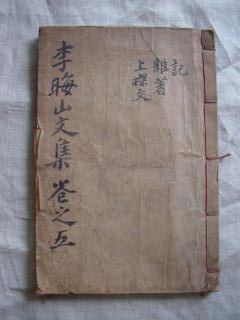 記
雜著
上樑文
李晦山文集卷之五